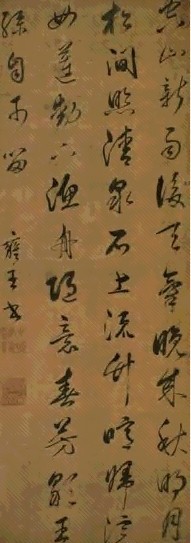 空山新雨後天氣晚來秋明月
松間照清泉石上流竹喧歸浣
女蓮動下漁舟隨意春芳歇王
孫自可留 雍王書